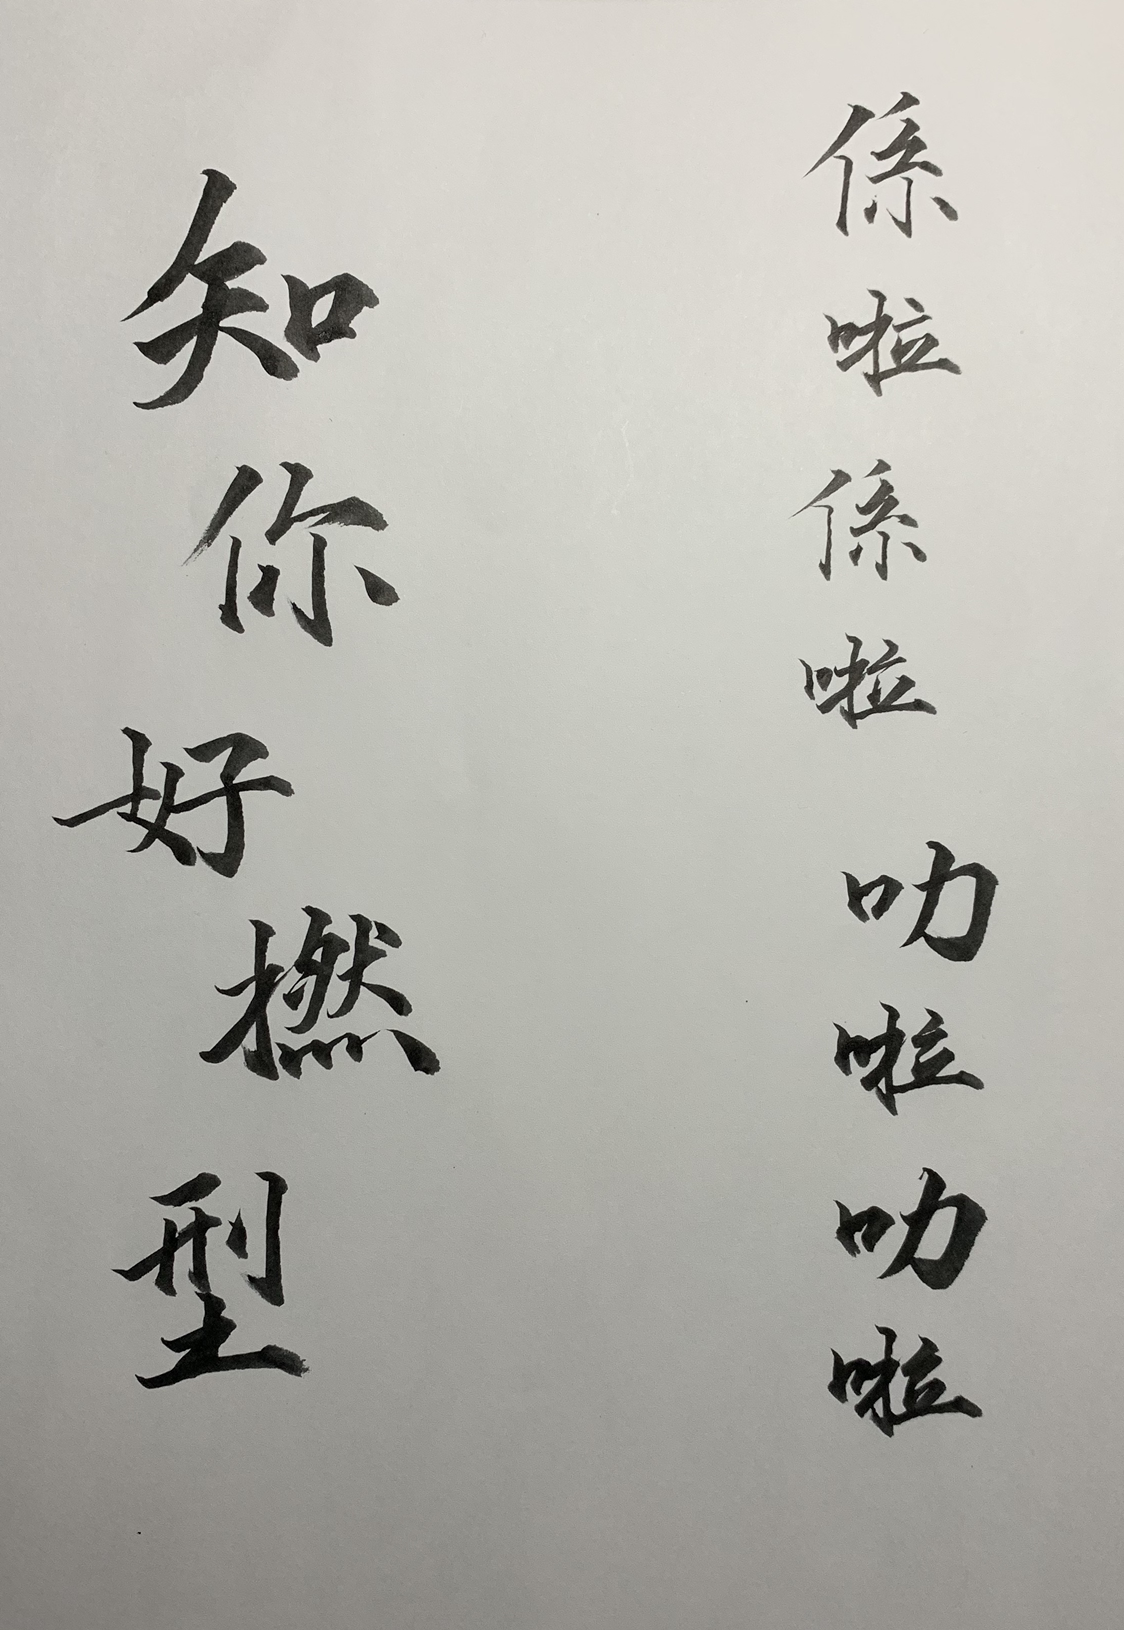 係啦係啦叻啦叻啦
知你好撚型